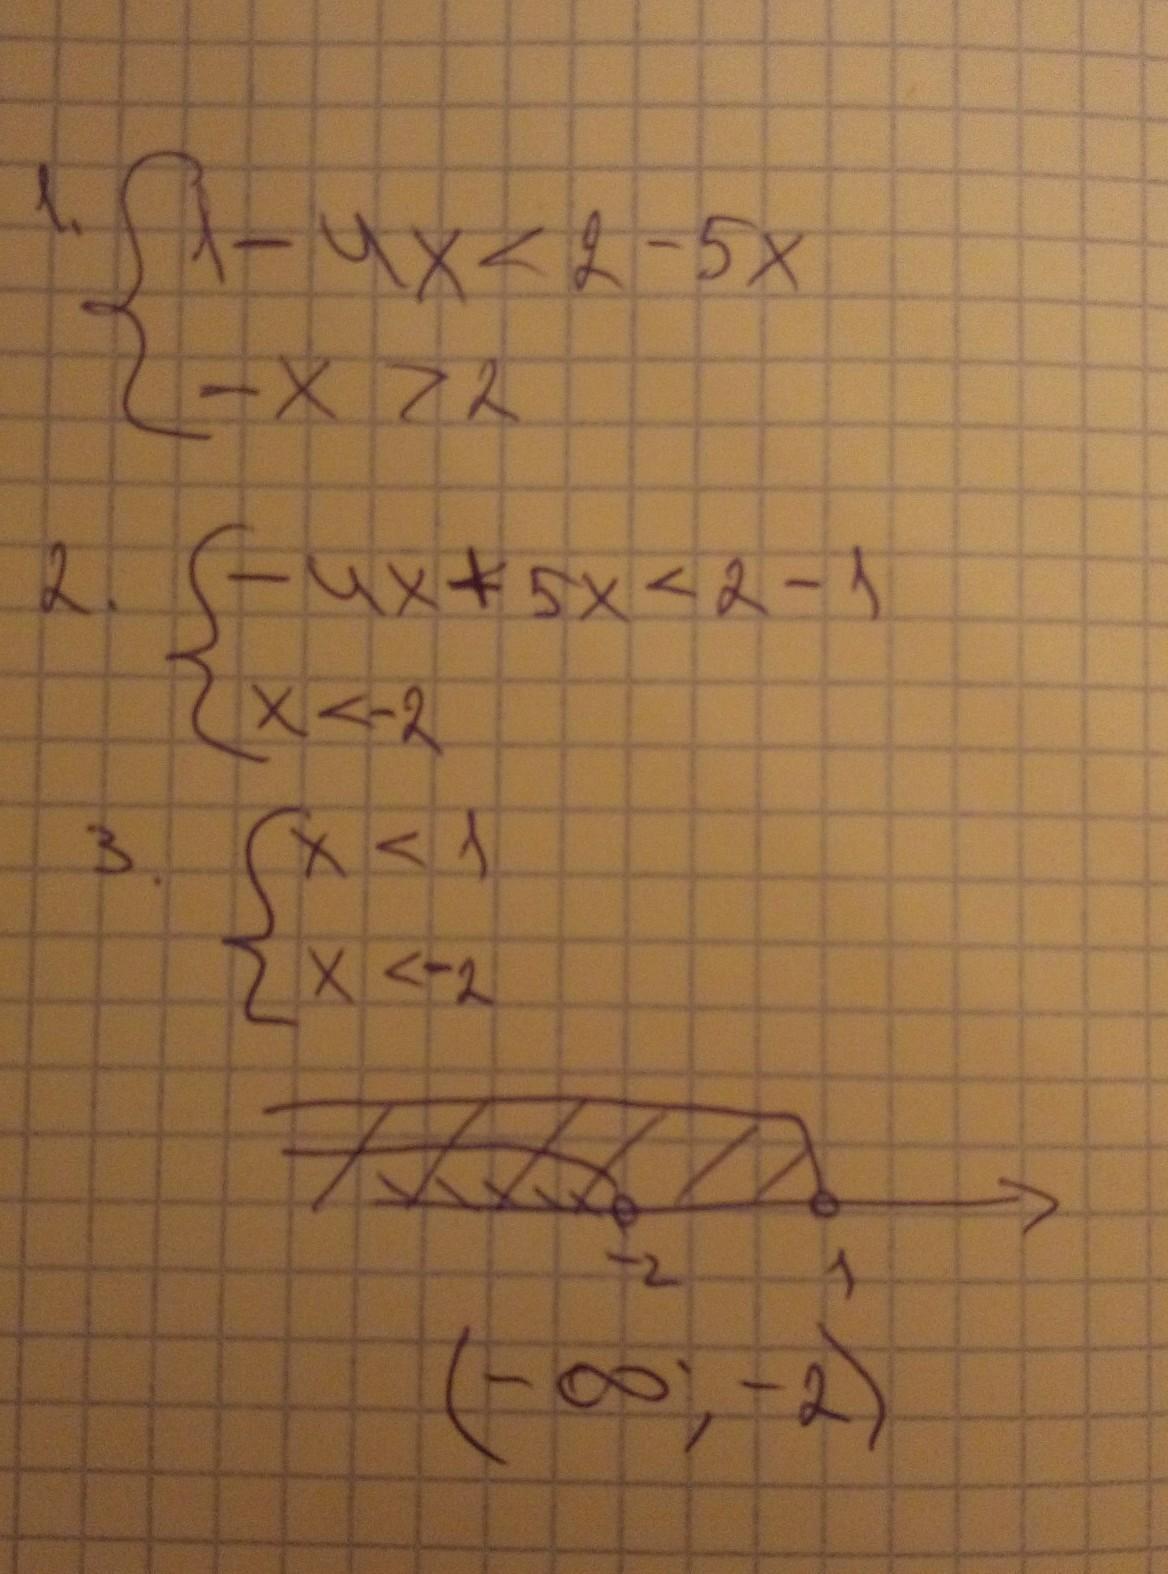 1. { 1 - 4x < 2 - 5x
-x > 2
2. { -4x + 5x < 2 - 1
x < -2
3. { x < 1
x < -2
-2 1
(-∞; -2)